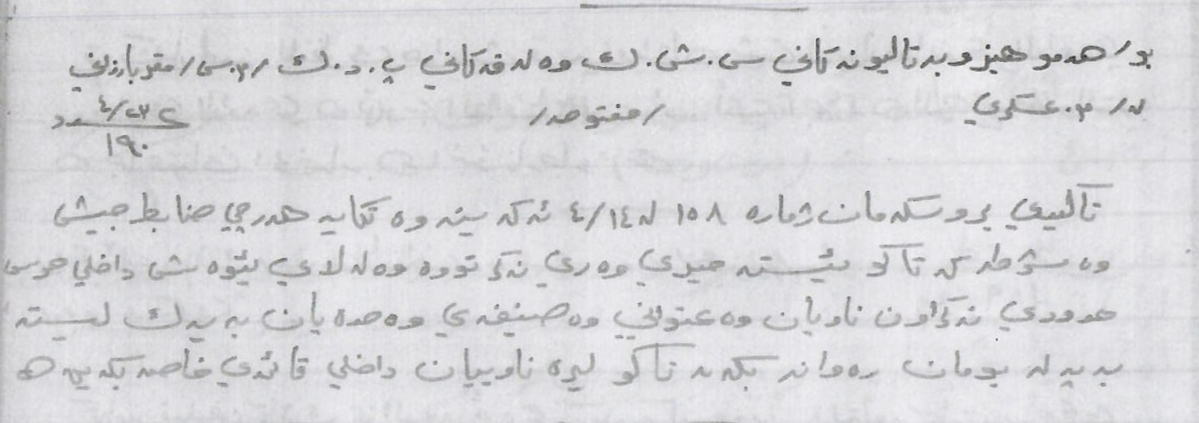 بو/ هەموو هێز و بەتالیونەکانی س.ش.ك وە لەقەکانی پ.د.ك /م.س/ مقر بارزانی
لە/ م.عسکري /مفتوحە/ عدد ٤/٢٣
١٩٠
تاکیدي بروسکەمان ژمارە ١٥٨ لە ٤/١٤ ئەکەینەوە تکایە هەرچي ضابط جیش
وە شرطە کە تاکو ئێستە وەري نەگرتووە وە لەلاي ئێوەش داخلي حرس
حدودي نەکراون ناویان وە عنواني وە صنیفەي وەحدەیان بە یەك لیستە
بە پەلە بومان رەوانە بکەن تاکو لێرە ناویان داخلي قائمەي خاصە بکەین